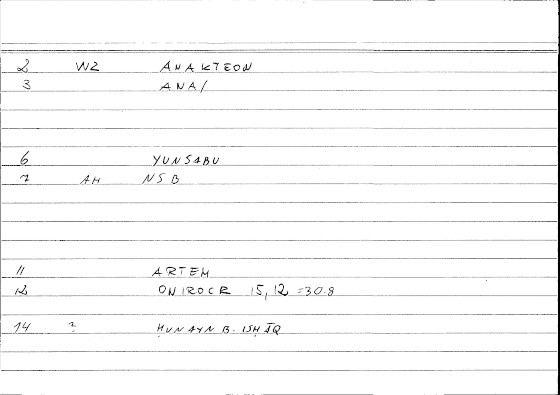 2 WZ ANAKTEON
3 ANA/
6 YUNSABU
7 AH NSB
11 ARTEM
12 ONIROCR 15,12 =30.8
14 ? ḤUNAYN B. ISḤĀQ